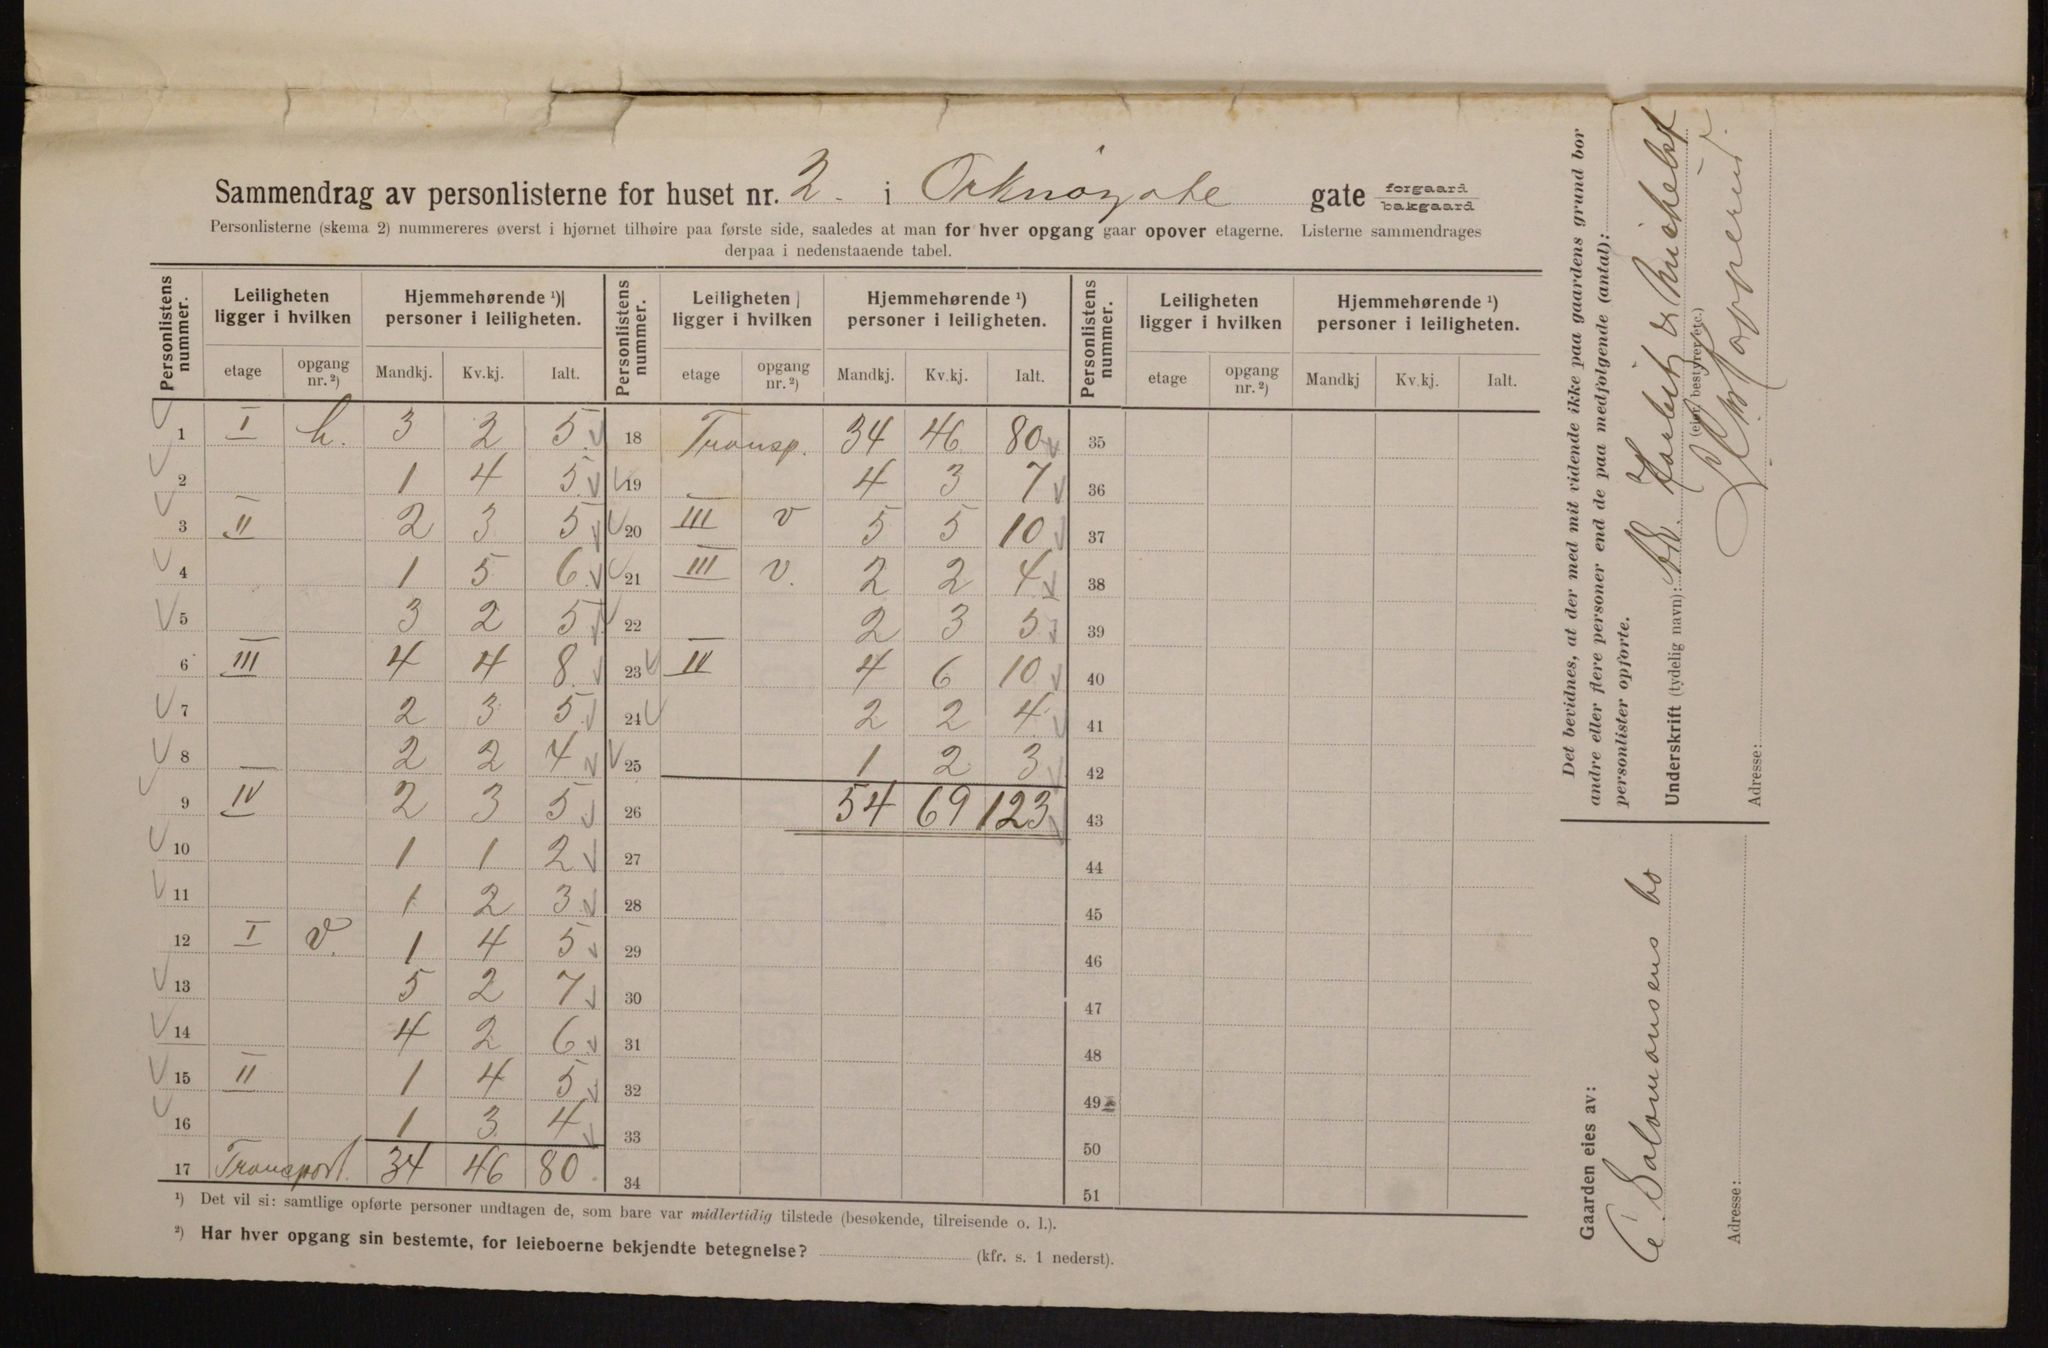 Sammendrag av personlisterne for huset nr. 2. i Orknøygate gate forgaard bakgaard
Personlisterne (skema 2) nummereres øverst i hjørnet tilhøire paa første side, saaledes at man for hver opgang gaar opover etagerne. Listerne sammendrages
derpaa i nedenstaaende tabel.
Personlistens nummer. Leiligheten ligger i hvilken Hjemmehørende ¹) personer i leiligheten. Personlistens nummer. Leiligheten ligger i hvilken Hjemmehørende ¹) personer i leiligheten. Personlistens nummer. Leiligheten ligger i hvilken Hjemmehørende ¹) personer i leiligheten.
etage opgang nr. ²) Mandkj. Kv.kj. Ialt. etage opgang nr. ²) Mandkj. Kv.kj. Ialt. etage opgang nr. ²) Mandkj Kv.kj. Ialt.
1 I h. 3 2 5 18 Transp. 34 46 80 35
2 1 4 5 19 4 3 7 36
3 II 2 3 5 20 III v 5 5 10 37
4 1 5 6 21 III v. 2 2 4 38
5 3 2 5 22 2 3 5 39
6 III 4 4 8 23 IV 4 6 10 40
7 2 3 5 24 2 2 4 41
8 2 2 4 25 1 2 3 42
9 IV 2 3 5 26 54 69 123 43
10 1 1 2 27 44
11 1 2 3 28 45
12 I v. 1 4 5 29 46
13 5 2 7 30 47
14 4 2 6 31 48
15 II 1 4 5 32 49
16 1 3 4 33 50
17 Transport. 34 46 80 34 51
¹) Det vil si: samtlige opførte personer undtagen de, som bare var midlertidig tilstede (besøkende, tilreisende o. l.).
²) Har hver opgang sin bestemte, for leieboerne bekjendte betegnelse? (kfr. s. 1 nederst).
Det bevidnes, at der med mit vidende ikke paa gaardens grund bor
andre eller flere personer end de paa medfølgende (antal):
personlister opførte.
Underskrift (tydelig navn):
(eier, bestyrer etc.)
Adresse:
Gaarden eies av:
Salomonsens bo
Adresse: